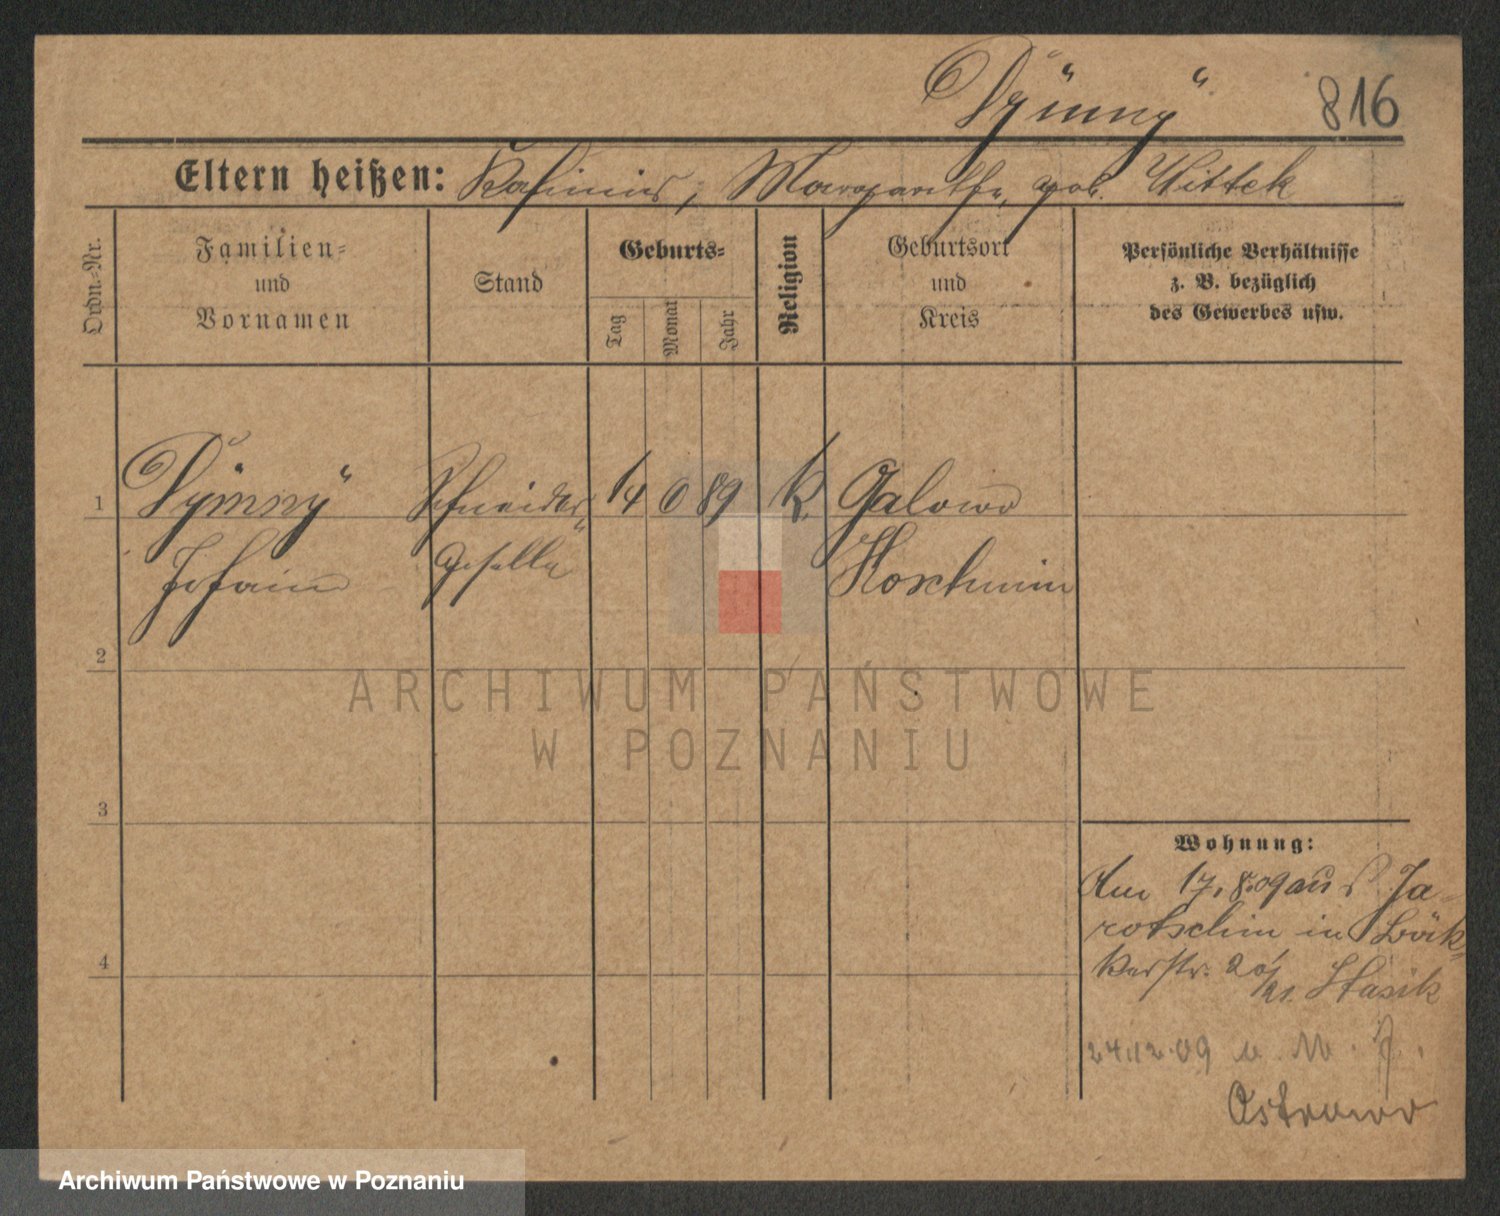 Dÿmnÿ
816
Eltern heißen: Kasimir, Margarethe, geb. Wittek
Ordn.-Nr.
Familien-
und
Vornamen
Stand
Geburts-
Tag
Monat
Jahr
Religion
Geburtsort
und
Kreis
Persönliche Verhältnisse
z. B. bezüglich
des Gewerbes usw.
1
Dÿmnÿ
Johann
Schneider
geselle
14
6
89
k.
Galowo
Koschmin
2
3
4
Wohnung:
Am 17.8.09 aus Ja-
rotschin in Bäk-
kerstr. 20/21. Stasik
24.12.09 n.
Ostrowo
ARCHIWUM PAŃSTWOWE
W POZNANIU
Archiwum Państwowe w Poznaniu